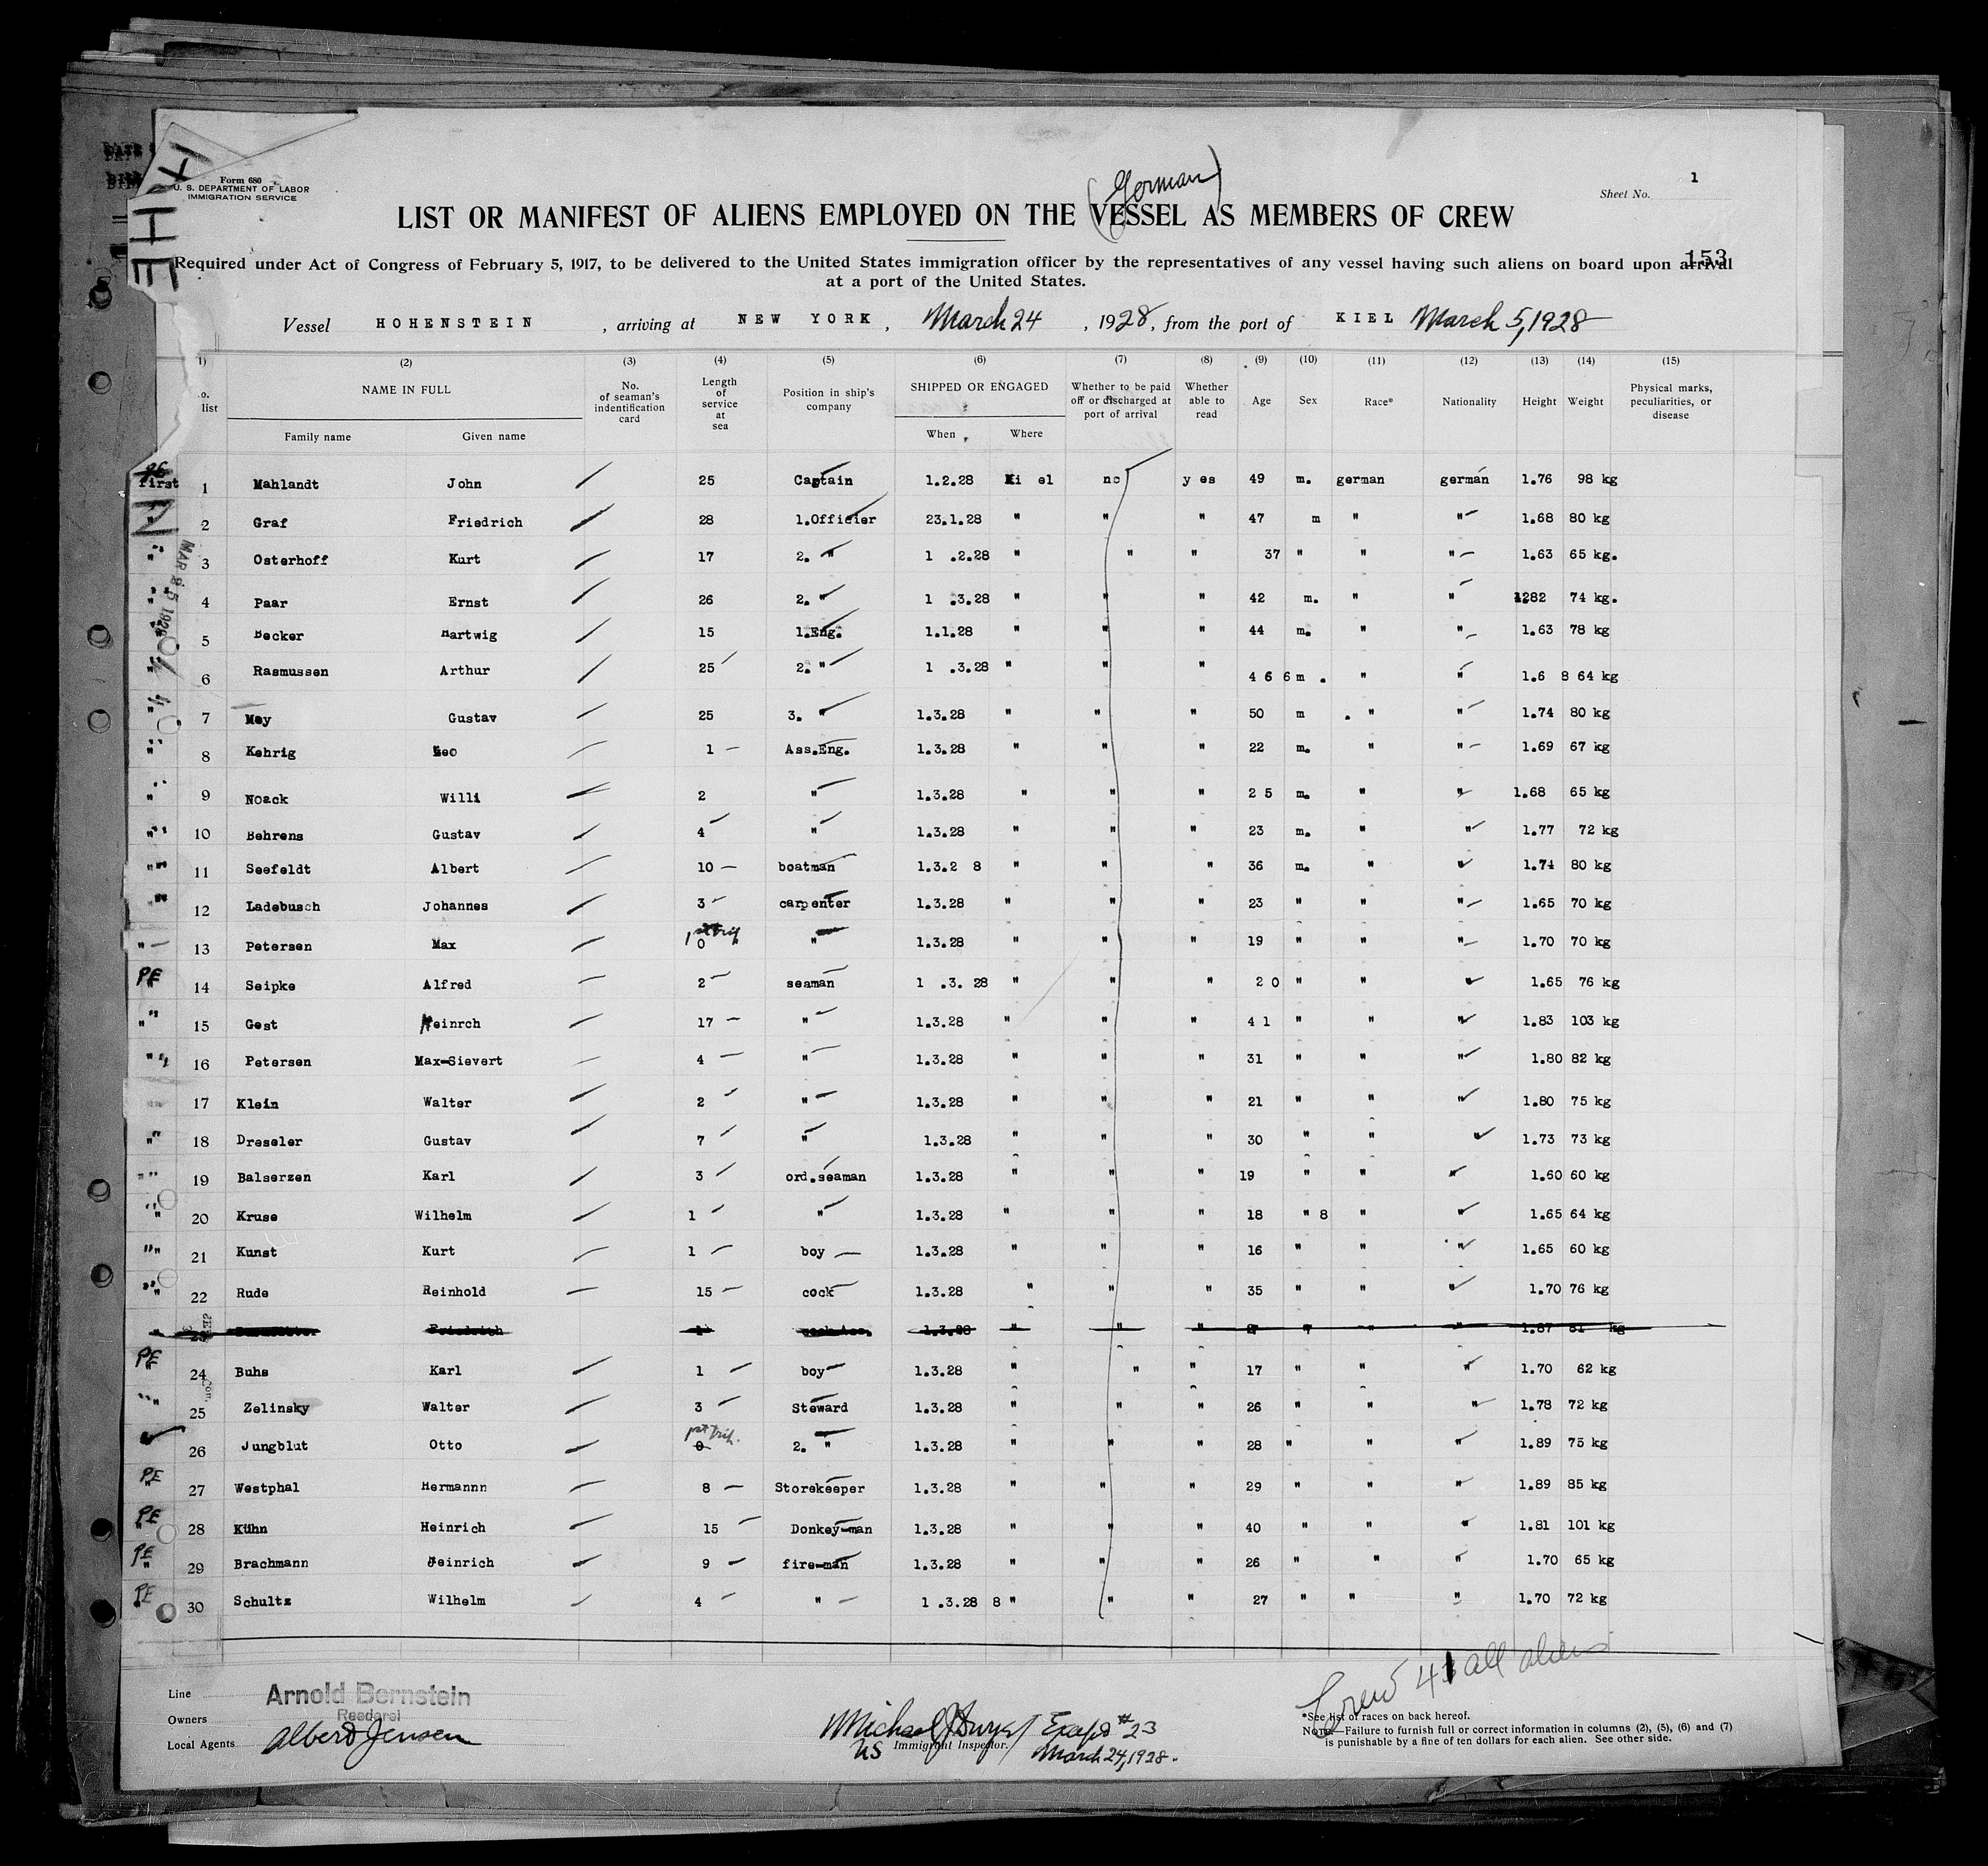 Form 680
U. S. DEPARTMENT OF LABOR
IMMIGRATION SERVICE
(German)
Sheet No. 1
LIST OR MANIFEST OF ALIENS EMPLOYED ON THE VESSEL AS MEMBERS OF CREW
153
Required under Act of Congress of February 5, 1917, to be delivered to the United States immigration officer by the representatives of any vessel having such aliens on board upon arrival
at a port of the United States.
Vessel HOHENSTEIN , arriving at NEW YORK , March 24 , 1928, from the port of KIEL March 5, 1928
(2) (3) (4) (5) (6) (7) (8) (9) (10) (11) (12) (13) (14) (15)
NAME IN FULL No. of seaman's indentification card Length of service at sea Position in ship's company SHIPPED OR ENGAGED Whether to be paid off or discharged at port of arrival Whether able to read Age Sex Race* Nationality Height Weight Physical marks, peculiarities, or disease
list Family name Given name When Where
first 1 Mahlandt John 25 Captain 1.2.28 Ki el no yes 49 m. german german 1.76 98 kg
2 Graf Friedrich 28 1.Officier 23.1.28 " " " 47 m " " 1.68 80 kg
" 3 Osterhoff Kurt 17 2. " 1 .2.28 " " " 37 " " " 1.63 65 kg.
" 4 Paar Ernst 26 2. " 1 .3.28 " " " 42 m. " " 1282 74 kg.
" 5 Becker Hartwig 15 1.Eng. 1.1.28 " " " 44 m. " " 1.63 78 kg
" 6 Rasmussen Arthur 25 2. " 1 .3.28 " " " 4 6 6 m . " " 1.6 8 64 kg
" 7 Mey Gustav 25 3. " 1.3.28 " " " 50 m . " " 1.74 80 kg
" 8 Kehrig Leo 1 Ass.Eng. 1.3.28 " " " 22 m. " " 1.69 67 kg
" 9 Noack Willi 2 " 1.3.28 " " " 2 5 m. " " 1.68 65 kg
" 10 Behrens Gustav 4 " 1.3.28 " " " 23 m. " " 1.77 72 kg
" 11 Seefeldt Albert 10 boatman 1.3.2 8 " " " 36 m. " " 1.74 80 kg
" 12 Ladebusch Johannes 3 carpenter 1.3.28 " " " 23 " " " 1.65 70 kg
1st trip
" 13 Petersen Max 0 " 1.3.28 " " " 19 " " " 1.70 70 kg
PE 14 Seipke Alfred 2 seaman 1 .3. 28 " " " 2 0 " " " 1.65 76 kg
" 15 Gest Heinrch 17 " 1.3.28 " " " 4 1 " " " 1.83 103 kg
" 16 Petersen Max-Sievert 4 " 1.3.28 " " " 31 " " " 1.80 82 kg
17 Klein Walter 2 " 1.3.28 " " " 21 " " " 1.80 75 kg
" 18 Dreseler Gustav 7 " 1.3.28 " " " 30 " " " 1.73 73 kg
" 19 Balserzen Karl 3 ord.seaman 1.3.28 " " " 19 " " " 1.60 60 kg
" 20 Kruse Wilhelm 1 " 1.3.28 " " " 18 " 8 " " 1.65 64 kg
" 21 Kunst Kurt 1 boy 1.3.28 " " " 16 " " " 1.65 60 kg
" 22 Rude Reinhold 15 cock 1.3.28 " " " 35 " " " 1.70 76 kg
" 23 Friedrich 1 1.3.28 " " " " " 1.87 81 kg
PE 24 Buhs Karl 1 boy 1.3.28 " " " 17 " " " 1.70 62 kg
" 25 Zelinsky Walter 3 Steward 1.3.28 " " " 26 " " " 1.78 72 kg
1st trip.
26 Jungblut Otto 0 2. " 1.3.28 " " " 28 " " " 1.89 75 kg
PE 27 Westphal Hermannn 8 Storekeeper 1.3.28 " " " 29 " " " 1.89 85 kg
PE 28 Kühn Heinrich 15 Donkey-man 1.3.28 " " " 40 " " " 1.81 101 kg
PE 29 Brachmann Heinrich 9 fire-man 1.3.28 " " " 26 " " " 1.70 65 kg
PE 30 Schultz Wilhelm 4 " 1 .3.28 8 " " " 27 " " " 1.70 72 kg
Crew 41 all aliens
Line Arnold Bernstein
Owners Reederei
Local Agents Albert Jensen
Michael J Dwyer Except #23
US Immigrant Inspector. March 24, 1928.
*See list of races on back hereof.
NOTE.—Failure to furnish full or correct information in columns (2), (5), (6) and (7)
is punishable by a fine of ten dollars for each alien. See other side.